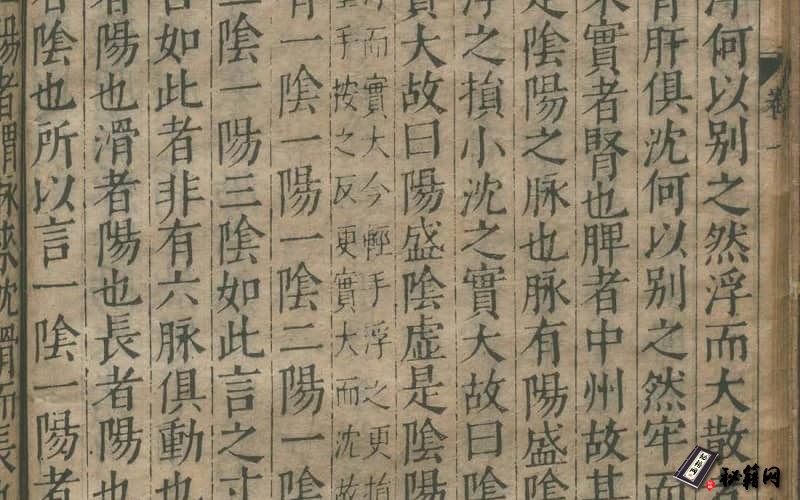 卷一
浮何以别之然浮而大散
肝俱沈何以别之然牢而
實者腎也脾者中州故其
是陰陽之脉也脉有陽盛陰
浮之損小沈之實大故曰陰
實大故曰陽盛陰虛是陰陽
浮而實大今輕手浮之更損
手按之反更實大而沈故
有一陰一陽一陰二陽一陰
一陰一陽三陰如此言之寸
如此者非有六脉俱動也
者陽也滑者陽也長者陽也
者陰也所以言一陰一陽者
陽者謂脉來沈滑而長
秘籍网